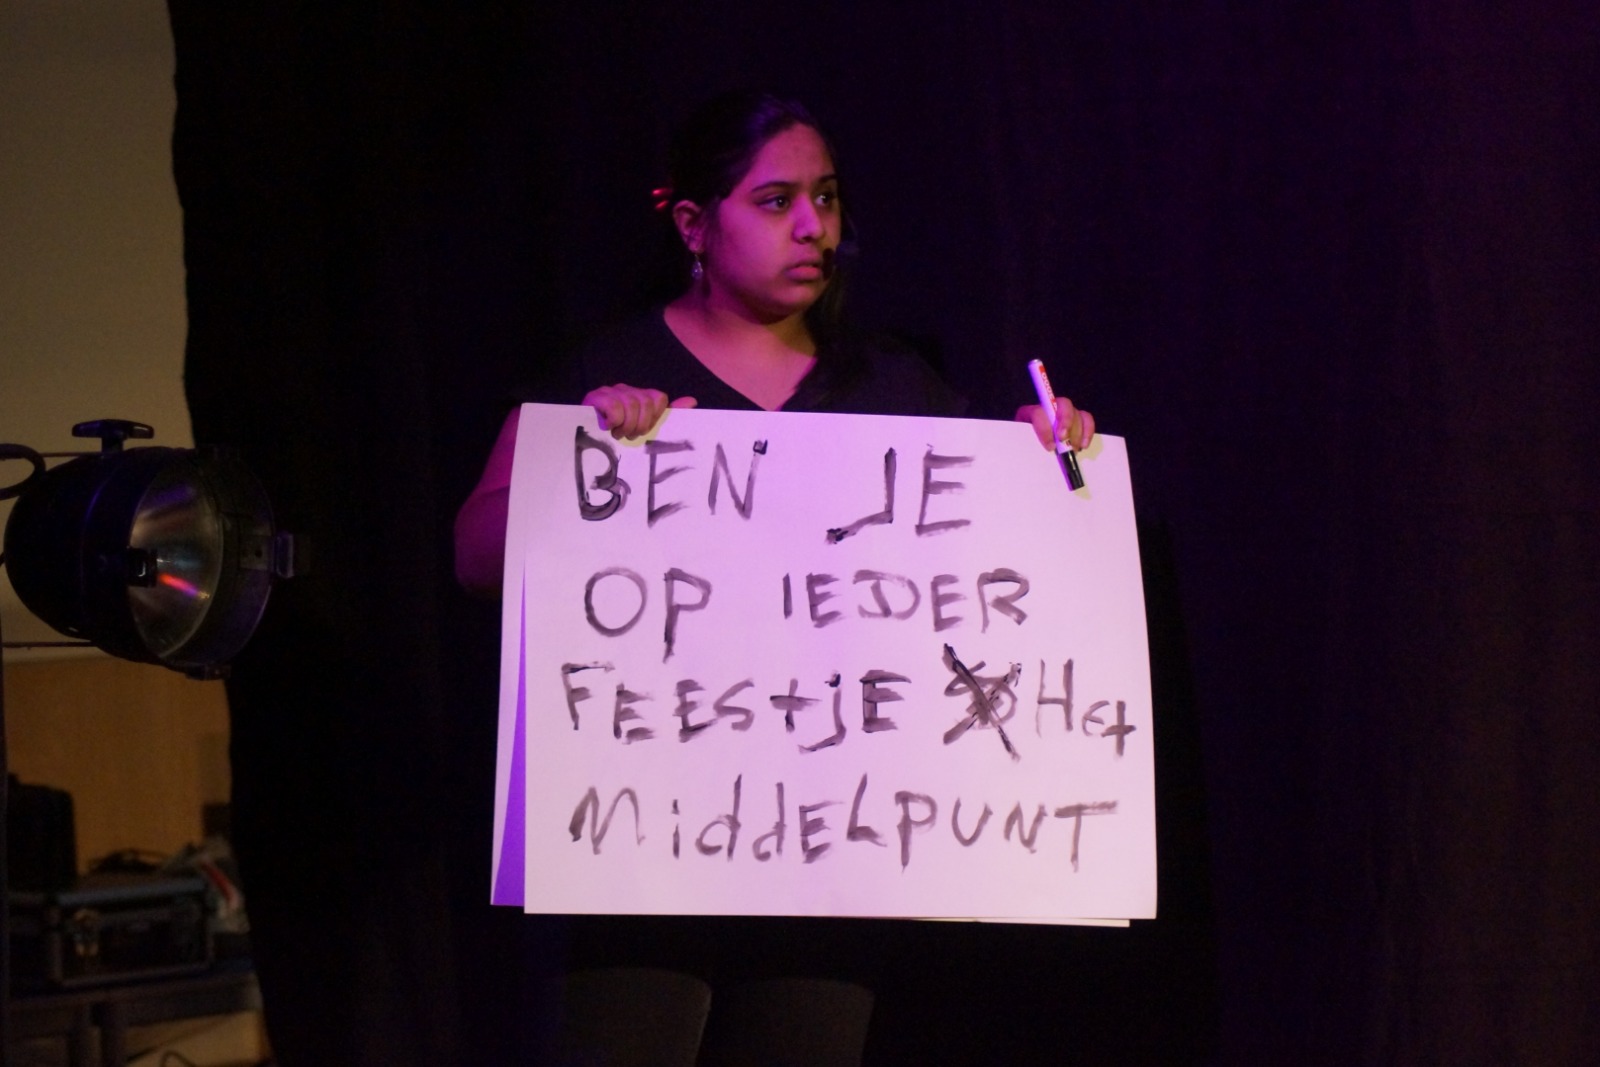 BEN JE
OP IEDER
FEEStjE Het
MiddELPUNT